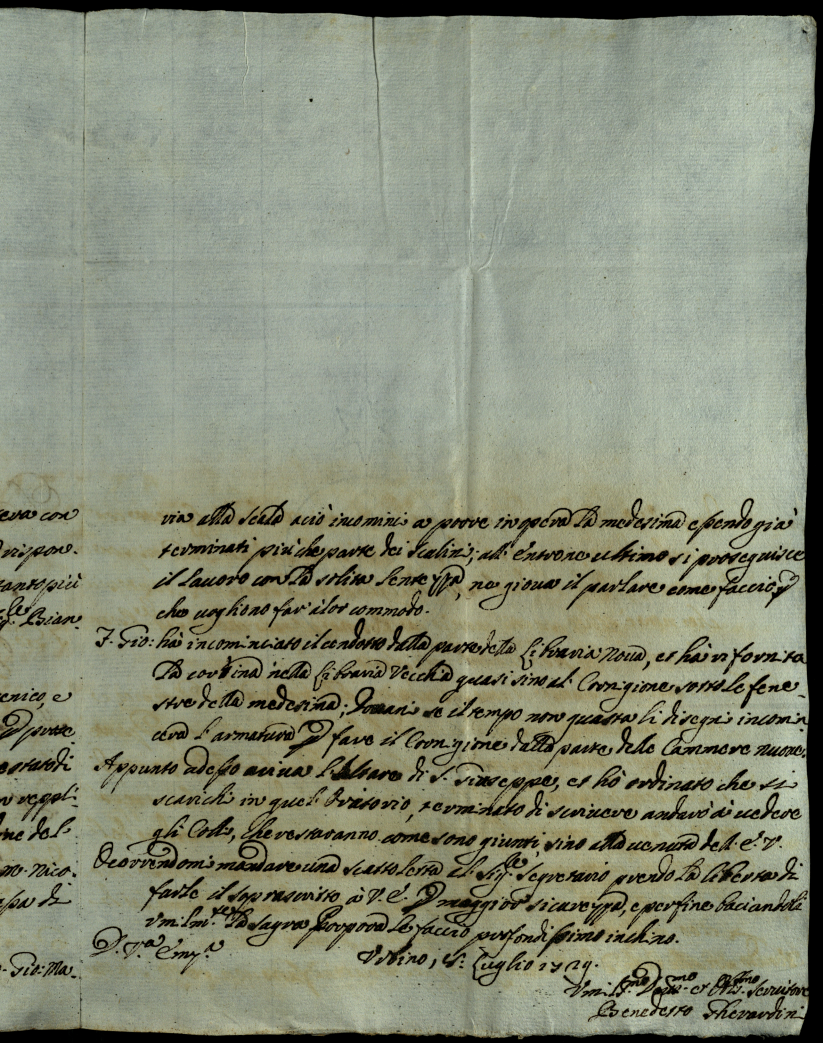 eva con
tanto più
Bian-
enico, e
statodi
ne del
m. Nico-
Gio: Ma-
via alla scala aciò incominci a porre in opera la medesima essendo già
terminati più che parte dei scalini; all'entrone ultimo si proseguisce
il lavoro con la solita lentezza, ne giova il parlare come faccio
che vogliono far à lor commodo.
F. Gio: hà incominciato il condotto dalla parte della Libraria nova, et hà rifornita
la cortina nella Libraria Vecchia quasi sino al Cornigione sotto le fene-
stre della medesima; Domani se il tempo non guasta li disegni incomin
cerà l'armatura P fare il Cornigione dalla parte delle Cammere nuove.
Appunto adesso arriva l'Altare di S. Giuseppe, et hò ordinato che si
scarichi in quel Oratorio, terminato di scrivere andarò à vedere
gli Colli, che restaranno come sono giunti, sino alla venuta dell'E. V.
Occorrendomi mandare una scattoletta al Sig.re Segretario prendo la libertà di
farle il soprascritto à V. E. P maggior sicarezza, e per fine baciandoli
um.lm.te la Sagra Porpora le faccio profondissimo inchino.
D. V.a Em.za
Urbino, P.o Luglio 1729.
Um.mo Dev.mo et Obl.mo Servitore
Benedetto Gherardini